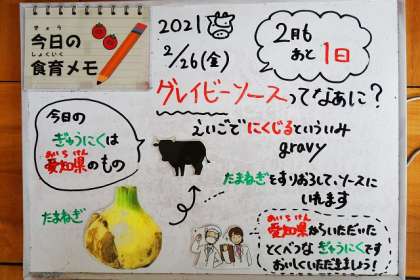 きょう
今日の
しょくいく
食育メモ
2021
2/26(金)
2月も
あと1日
グレイビーソースってなぁに?
えいごでにくじるといういみ
gravy
今日の
ぎゅうにくは
あいちけん
愛知県のもの
たまねぎをすりおろして、ソースに
いれます
たまねぎ
あいちけん
愛知県からいただいた
とくべつなぎゅうにくです
おいしくいただきましょう!